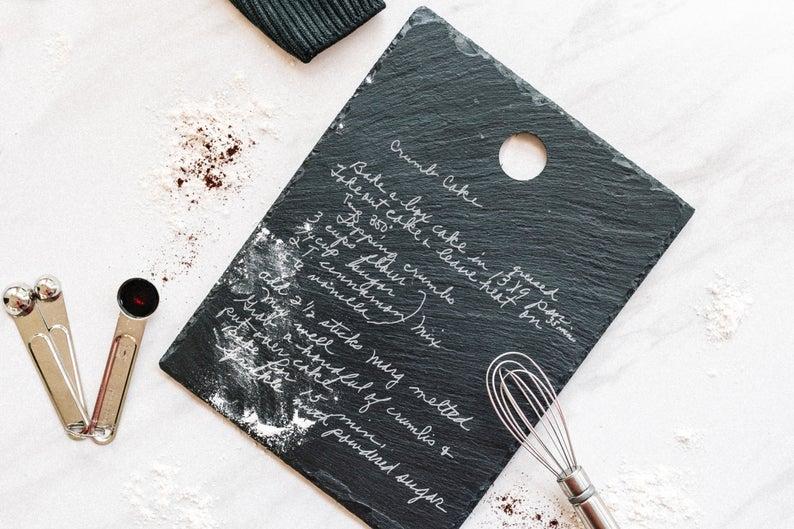 Crumb Cake
Bake a box cake in greased 13x9 pan
Take out cake & leave heat on 35 min
Temp 350°
Topping crumbs
3 cups flour
3/4 cup sugar
2 T cinnamon
2 vanilla } mix
add 2 1/2 sticks marg melted
mix well
Grab a handful of crumbs &
put over cake
Bake for 15 min.
Sprinkle with powdered sugar